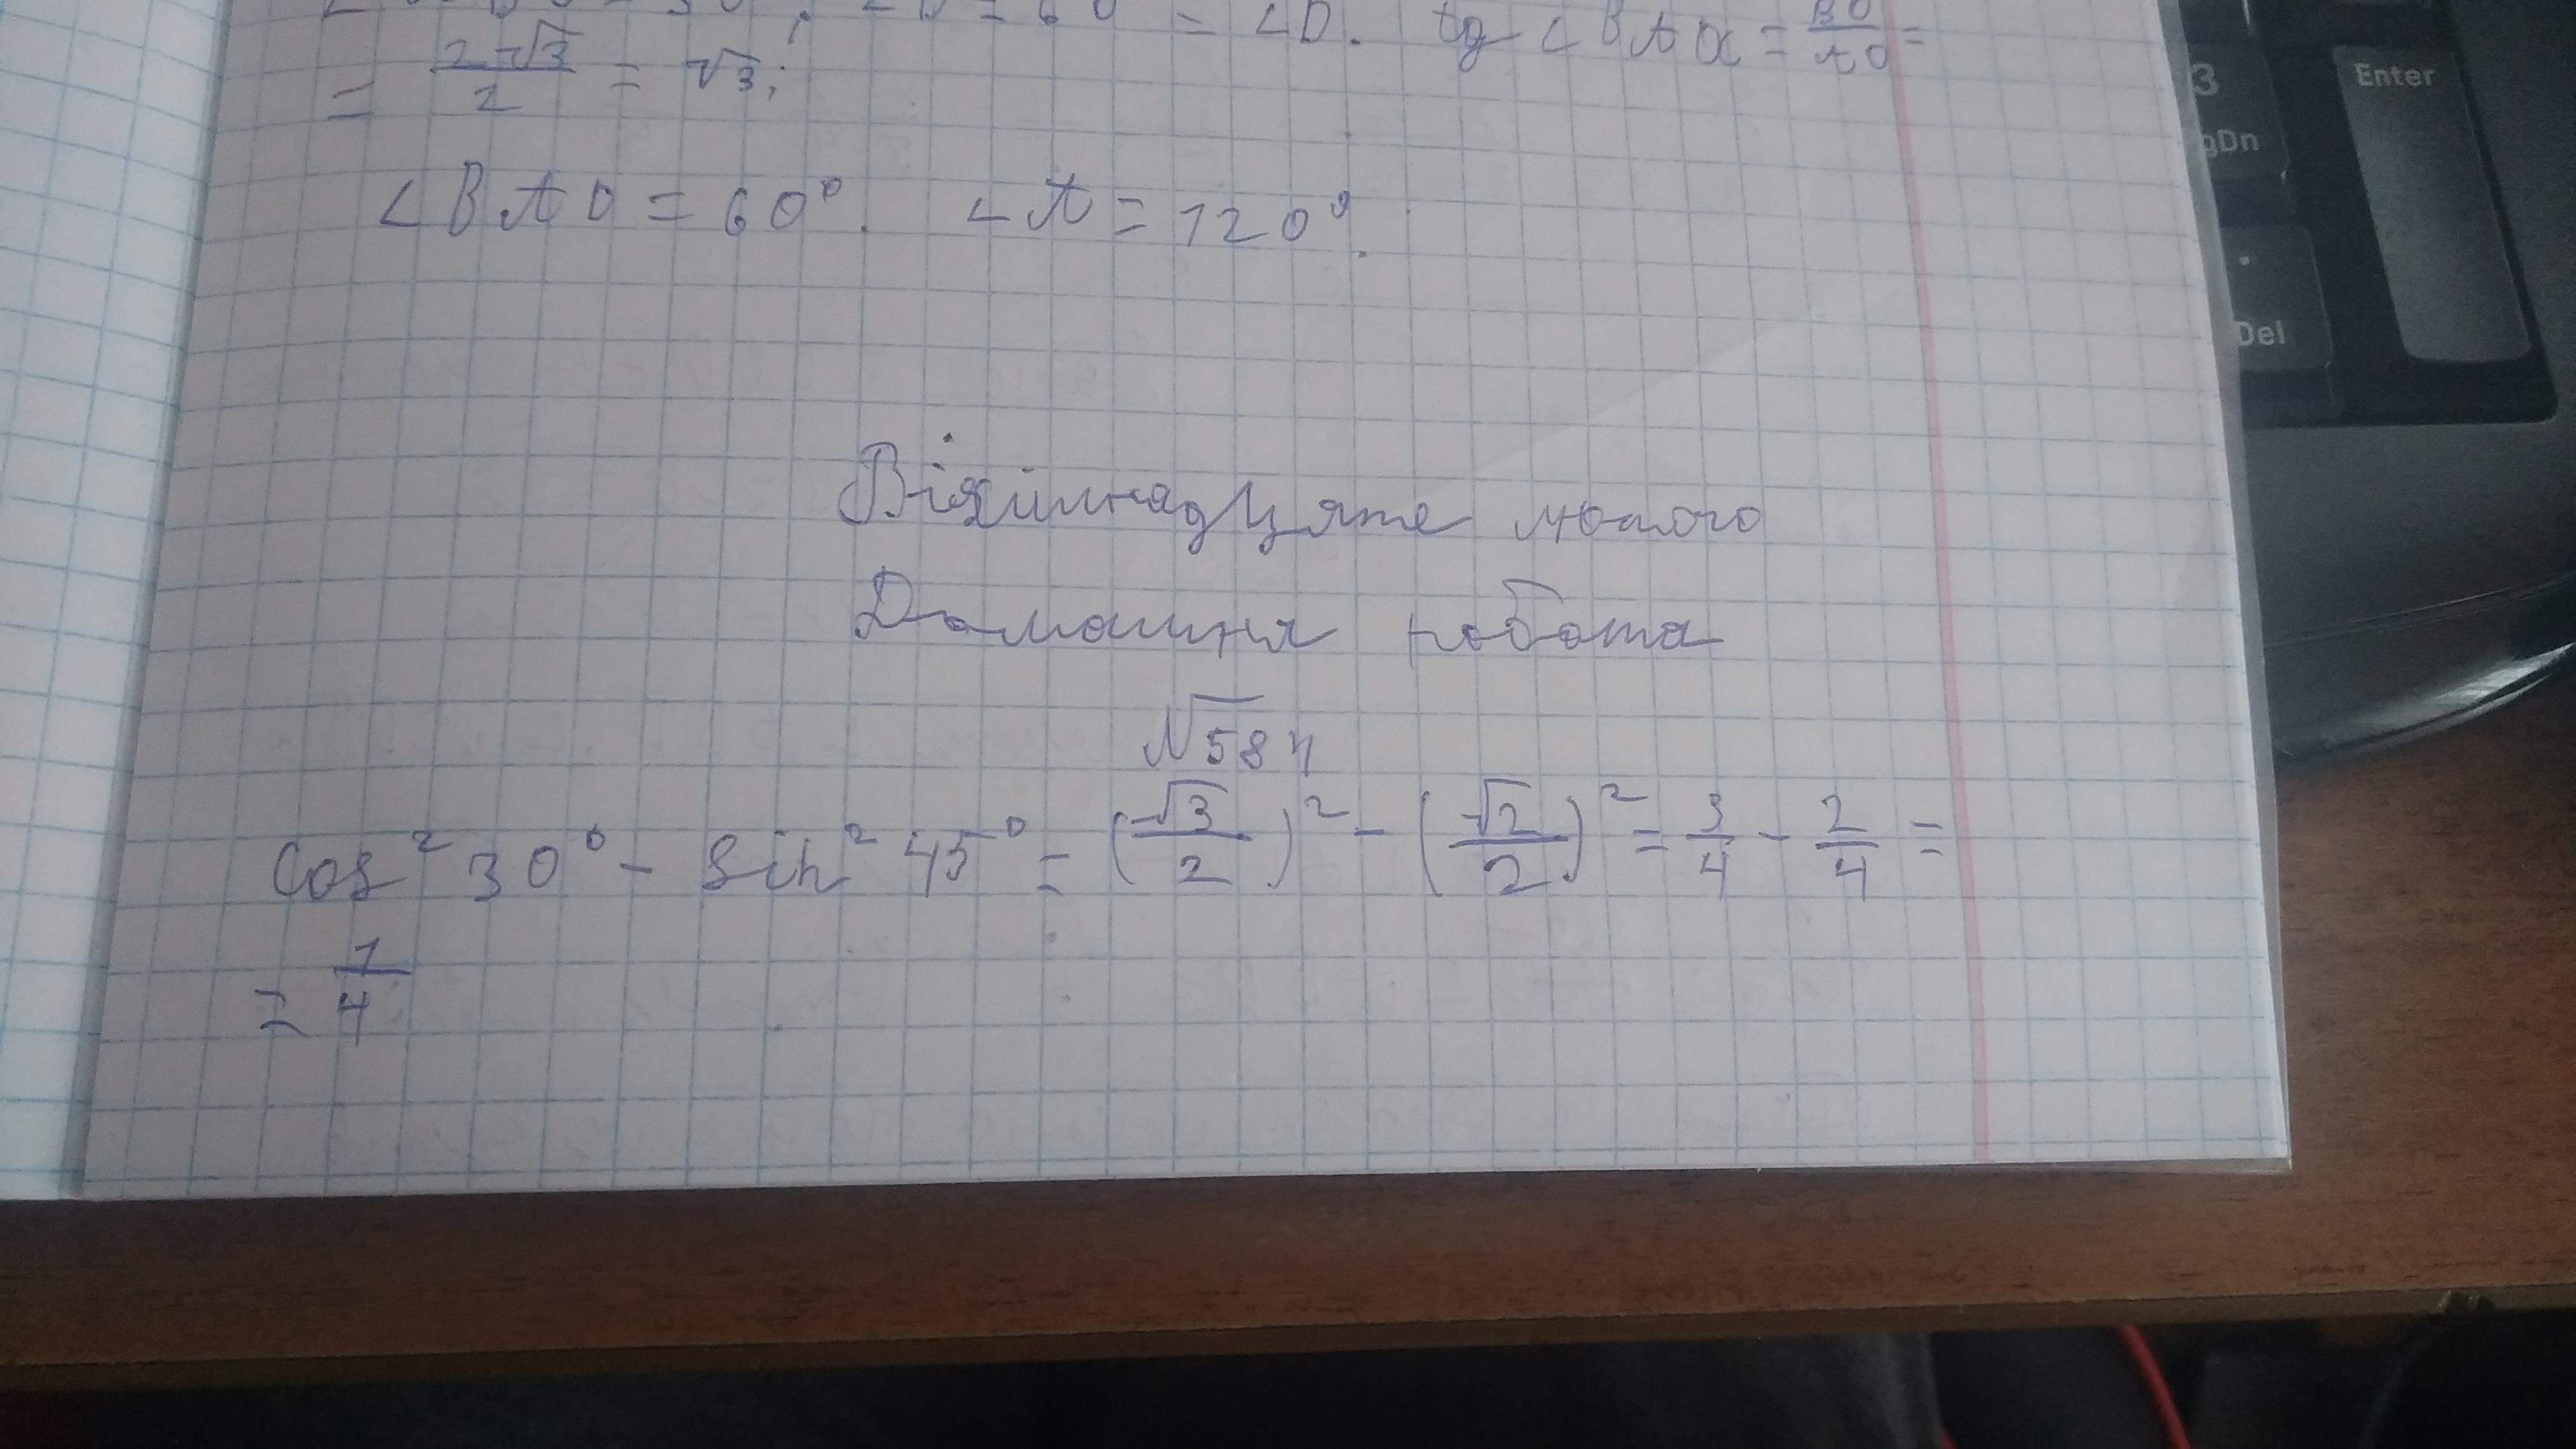 = 60 = ∠D. tg ∠BAO = BO/AO =
= 2√3/2 = √3;
∠BAO = 60°. ∠A = 120°.
Вісімнадцяте лютого
Домашня робота
√584
cos² 30° - sin² 45° = (√3/2)² - (√2/2)² = 3/4 - 2/4 =
= 1/4
3
PgDn
Enter
.
Del